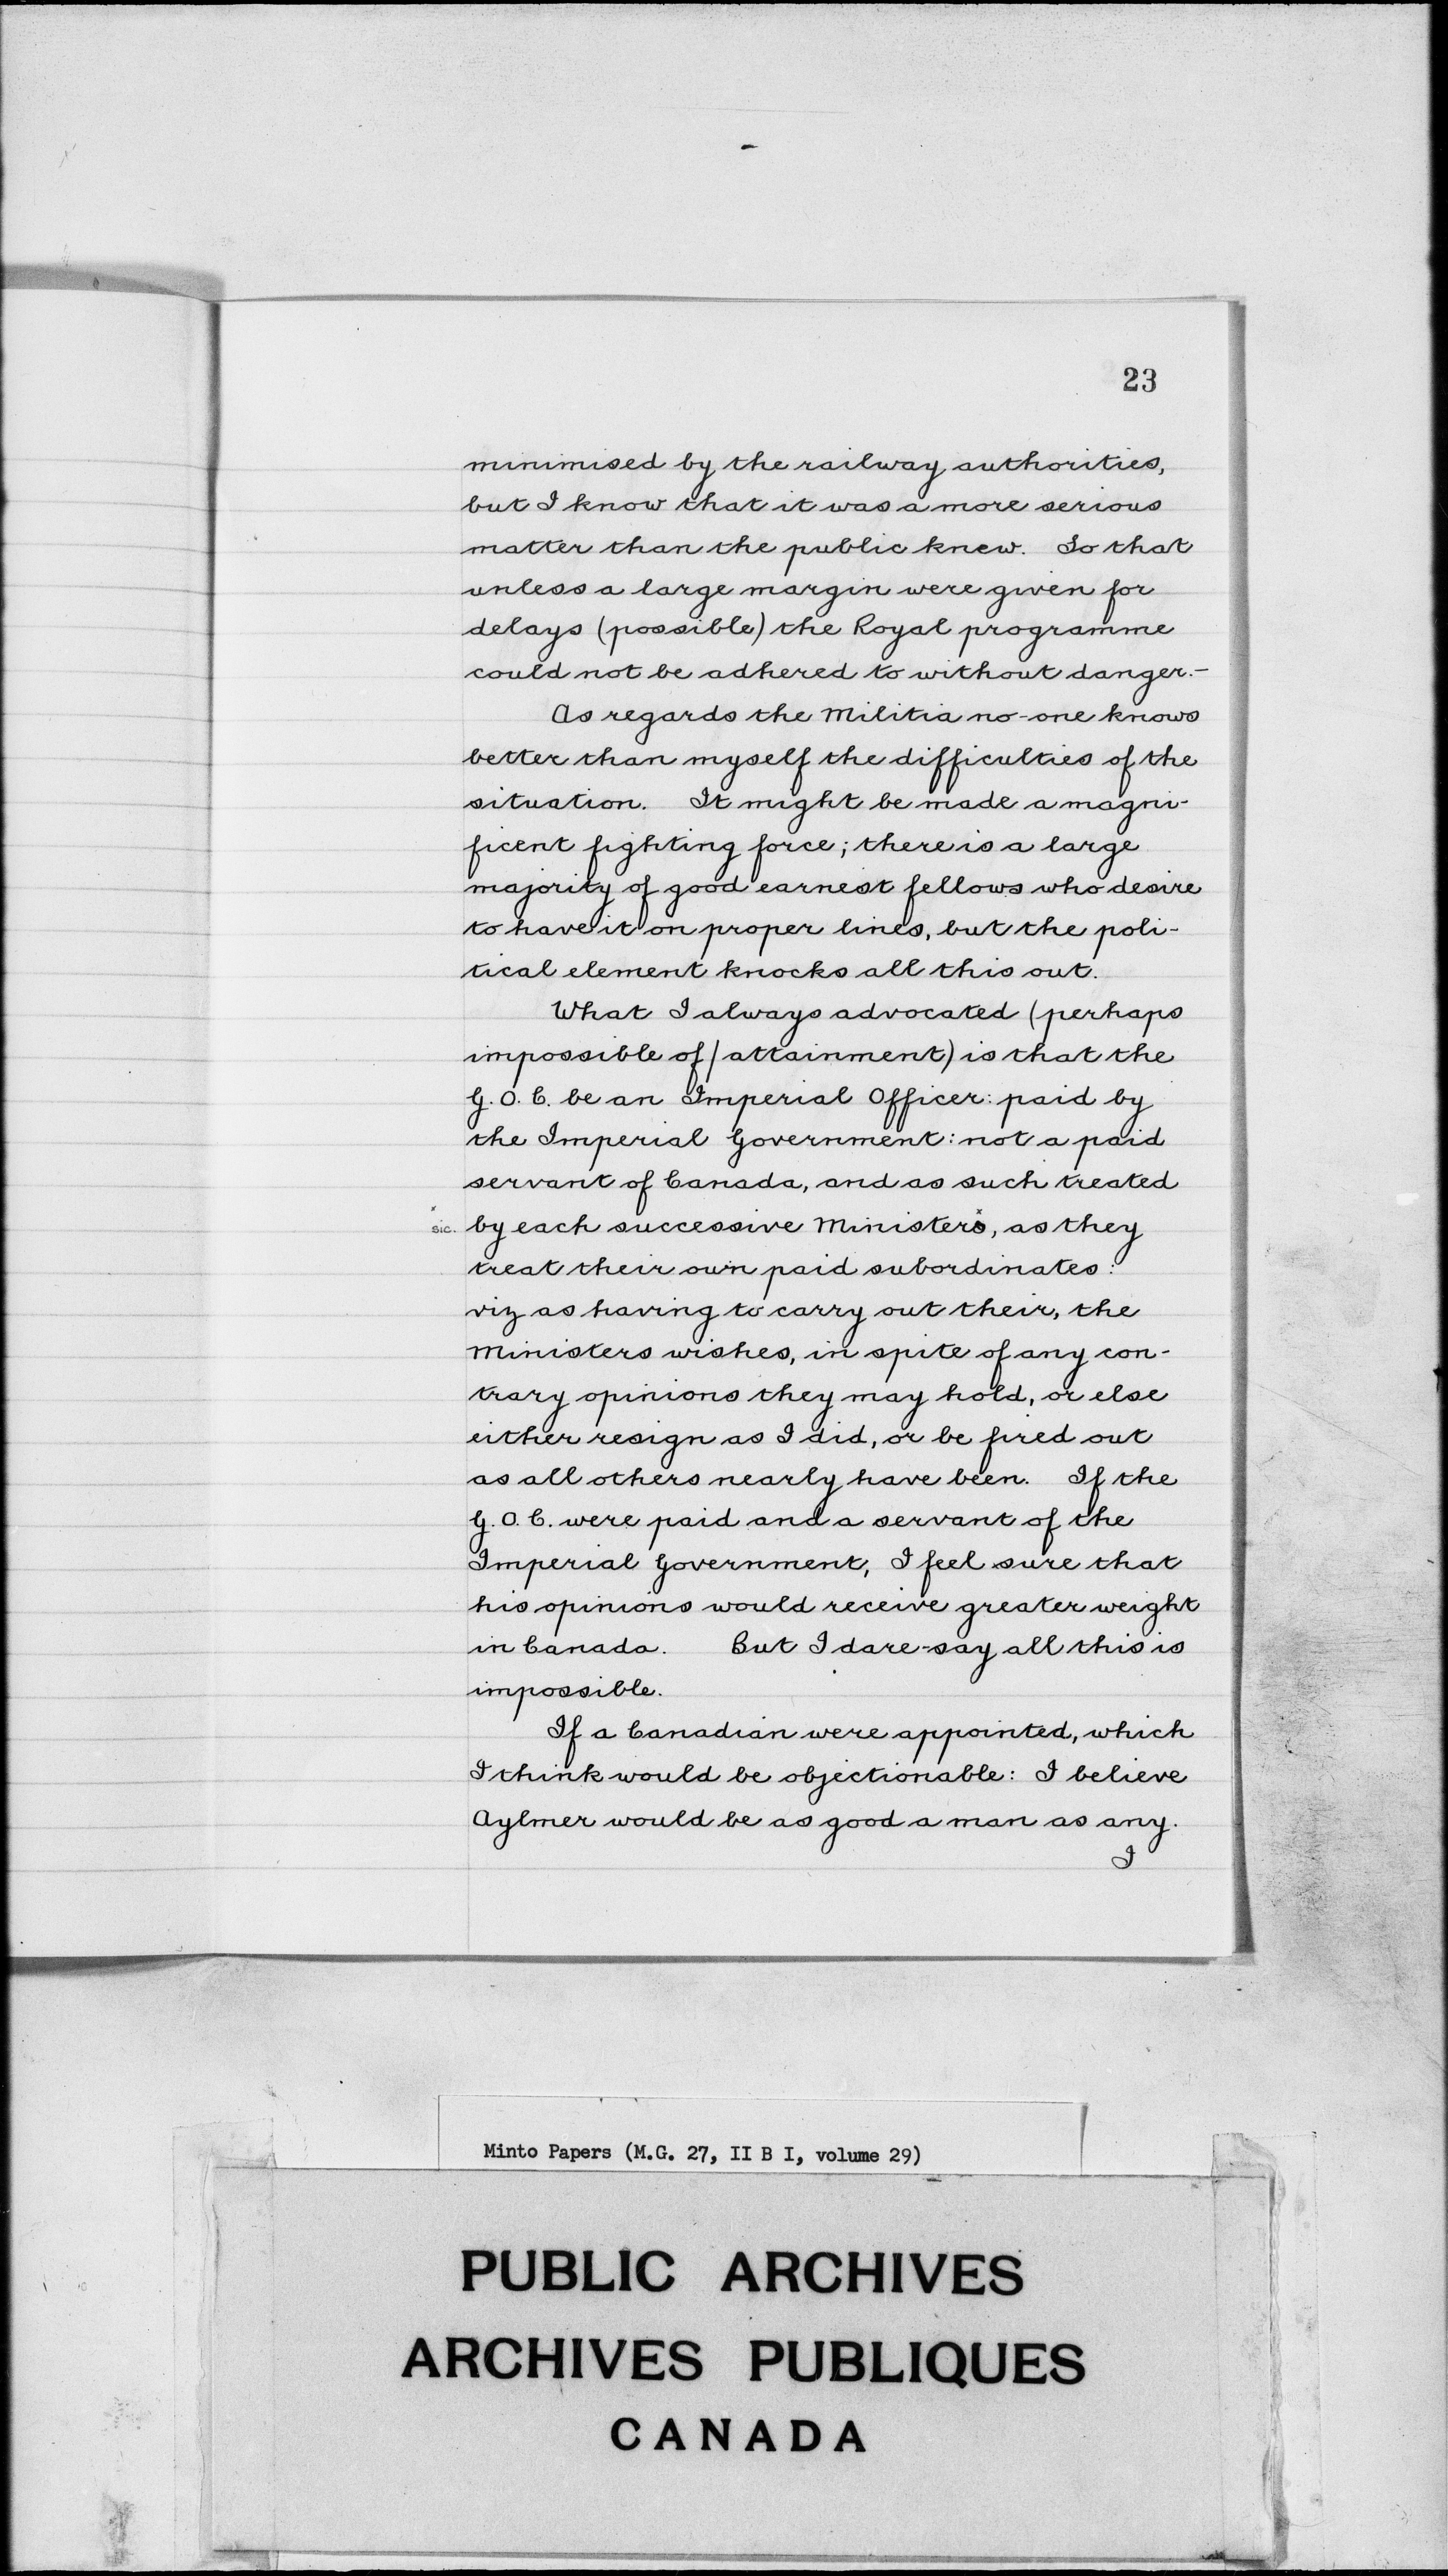 23
minimised by the railway authorities,
but I know that it was a more serious
matter than the public knew. So that
unless a large margin were given for
delays (possible) the Royal programme
could not be adhered to without danger.-
As regards the Militia no-one knows
better than myself the difficulties of the
situation. It might be made a magni-
ficent fighting force; there is a large
majority of good earnest fellows who desire
to have it on proper lines, but the poli-
tical element knocks all this out.
What I always advocated (perhaps
impossible of/attainment) is that the
G.O.C. be an Imperial Officer: paid by
the Imperial Government: not a paid
servant of Canada, and as such treated
* sic. by each successive Ministers*, as they
treat their own paid subordinates:
viz as having to carry out their, the
Ministers wishes, in spite of any con-
trary opinions they may hold, or else
either resign as I did, or be fired out
as all others nearly have been. If the
G.O.C. were paid and a servant of the
Imperial Government, I feel sure that
his opinions would receive greater weight
in Canada. But I dare-say all this is
impossible.
If a Canadian were appointed, which
I think would be objectionable: I believe
Aylmer would be as good a man as any.
I
Minto Papers (M.G. 27, II B I, volume 29)
PUBLIC ARCHIVES
ARCHIVES PUBLIQUES
CANADA